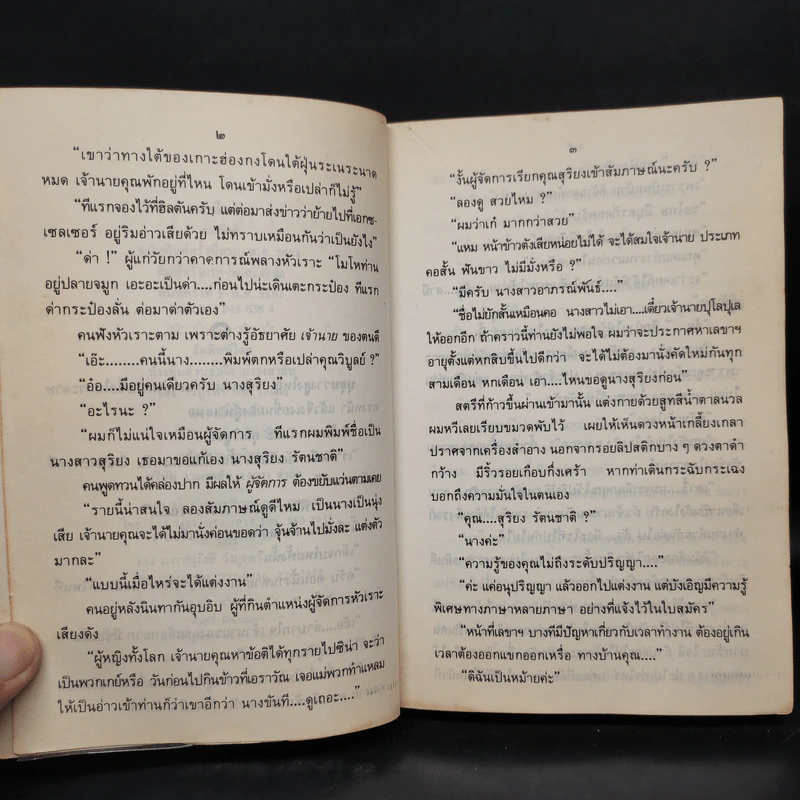 ๒
“เขาว่าทางใต้ของเกาะฮ่องกงโดนใต้ฝุ่นระเนระนาด
หมด เจ้านายคุณพักอยู่ที่ไหน โดนเข้ามั่งหรือเปล่าก็ไม่รู้”
“ทีแรกจองไว้ที่ฮิลตันครับ แต่ต่อมาส่งข่าวว่าย้ายไปที่เอกซ-
เซลเซอร์ อยู่ริมอ่าวเสียด้วย ไม่ทราบเหมือนกันว่าเป็นยังไง”
“ด่า !” ผู้แก่วัยกว่าคาดการณ์พลางหัวเราะ “โมโหท่าน
อยู่ปลายจมูก เอะอะเป็นด่า....ก่อนไปน่ะเดินเตะกระป๋อง ทีแรก
ด่ากระป๋องลั่น ต่อมาด่าตัวเอง”
คนฟังหัวเราะตาม เพราะต่างรู้อัธยาศัย เจ้านาย ของตนดี
“เอ๊ะ........คนนี้นาง........พิมพ์ตกหรือเปล่าคุณวิบูลย์ ?”
“อ๋อ....มีอยู่คนเดียวครับ นางสุริยง”
“อะไรนะ ?”
“ผมก็ไม่แน่ใจเหมือนผู้จัดการ ทีแรกผมพิมพ์ชื่อเป็น
นางสาวสุริยง เธอมาขอแก้เอง นางสุริยง รัตนชาติ”
คนพูดทวนได้คล่องปาก มีผลให้ ผู้จัดการ ต้องขยับแว่นตามเคย
“รายนี้น่าสนใจ ลองสัมภาษณ์ดูดีไหม เป็นนางเป็นนุ่ง
เสีย เจ้านายคุณจะได้ไม่มานั่งค่อนขอดว่า จุ้นจ้านไปมั่งละ แต่งตัว
มากละ”
“แบบนี้เมื่อไหร่จะได้แต่งงาน”
คนอยู่หลังนินทากันอุบอิบ ผู้ที่กินตำแหน่งผู้จัดการหัวเราะ
เสียงดัง
“ผู้หญิงทั้งโลก เจ้านายคุณหาข้อติได้ทุกรายไปซิน่า จะว่า
เป็นพวกเกย์หรือ วันก่อนไปกินข้าวที่เอราวัณ เจอแม่พวกทำแหลม
ให้เป็นอ่าวเข้าท่านก็ว่าเขาอีกว่า นางขันที....ดูเถอะ....”
๓
“งั้นผู้จัดการเรียกคุณสุริยงเข้าสัมภาษณ์นะครับ ?”
“ลองดู สวยไหม ?”
“ผมว่าเก๋ มากกว่าสวย”
“แหม หน้าข้าวตังเสียหน่อยไม่ได้ จะได้สมใจเจ้านาย ประเภท
คอสั้น ฟันขาว ไม่มีมั่งหรือ ?”
“มีครับ นางสาวอาภรณ์พันธ์....”
“ชื่อไม่ยักสั้นเหมือนคอ นางสาวไม่เอา....เดี๋ยวเจ้านายปุโลปุเล
ให้ออกอีก ถ้าคราวนี้ท่านยังไม่พอใจ ผมว่าจะประกาศหาเลขาฯ
อายุตั้งแต่หกสิบขึ้นไปดีกว่า จะได้ไม่ต้องมานั่งคัดใหม่กันทุก
สามเดือน หกเดือน เอา....ไหนขอดูนางสุริยงก่อน”
สตรีที่ก้าวขึ้นผ่านเข้ามานั้น แต่งกายด้วยสูทสีน้ำตาลนวล
ผมหวีเลยเรียบขมวดพับไว้ เผยให้เห็นดวงหน้าเกลี้ยงเกลา
ปราศจากเครื่องสำอาง นอกจากรอยลิปสติกบาง ๆ ดวงตาดำ
กว้าง มีริ้วรอยเกือบกึ่งเศร้า หากท่าเดินกระฉับกระเฉง
บอกถึงความมั่นใจในตนเอง
“คุณ....สุริยง รัตนชาติ ?”
“นางค่ะ”
“ความรู้ของคุณไม่ถึงระดับปริญญา....”
“ค่ะ แค่อนุปริญญา แล้วออกไปแต่งงาน แต่บังเอิญมีความรู้
พิเศษทางภาษาหลายภาษา อย่างที่แจ้งไว้ในใบสมัคร”
“หน้าที่เลขาฯ บางทีมีปัญหาเกี่ยวกับเวลาทำงาน ต้องอยู่เกิน
เวลาต้องออกแขกออกเหรื่อ ทางบ้านคุณ....”
“ดิฉันเป็นหม้ายค่ะ”